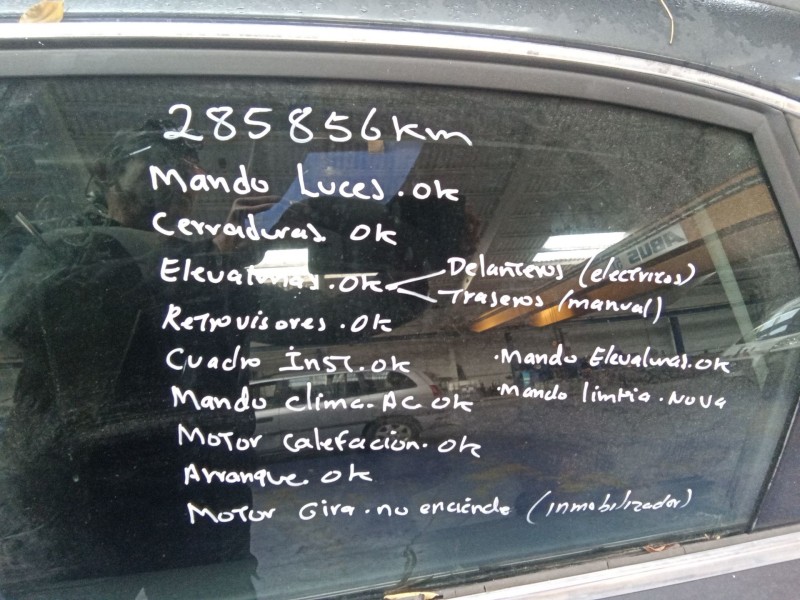 285856 km
Mando Luces. ok
Cerraduras ok
Elevalunas. ok
Delanteros (electricos)
Traseros (manual)
Retrovisores. ok
Cuadro inst. ok
Mando clima. AC ok
Motor calefacion. ok
Arranque. ok
Motor Gira. no enciende (inmobilizador)
· Mando Elevalunas. ok
· Mando limpia. NOVA
ABUS